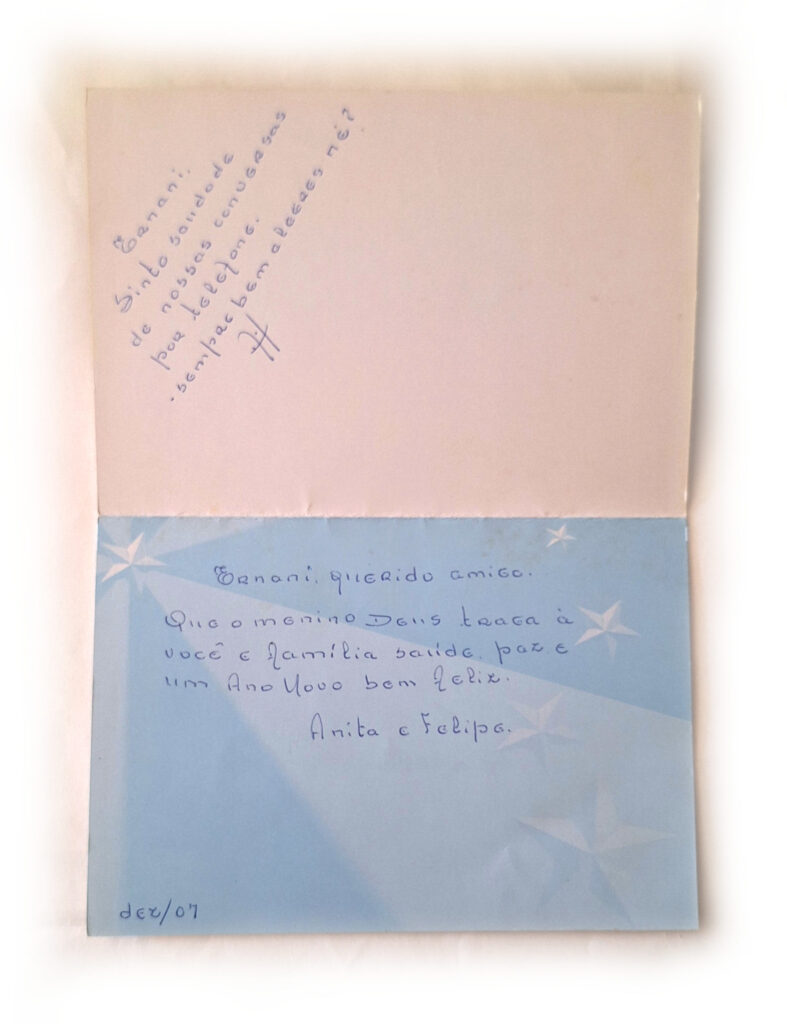 Ernani.
Sinto saudade
de nossas conversas
por telefone.
sempre bem alegres né?
A/
Ernani, querido amigo.
Que o menino Deus traga à
você e família saúde, paz e
um Ano Novo bem feliz.
Anita e Felipe.
dez/07